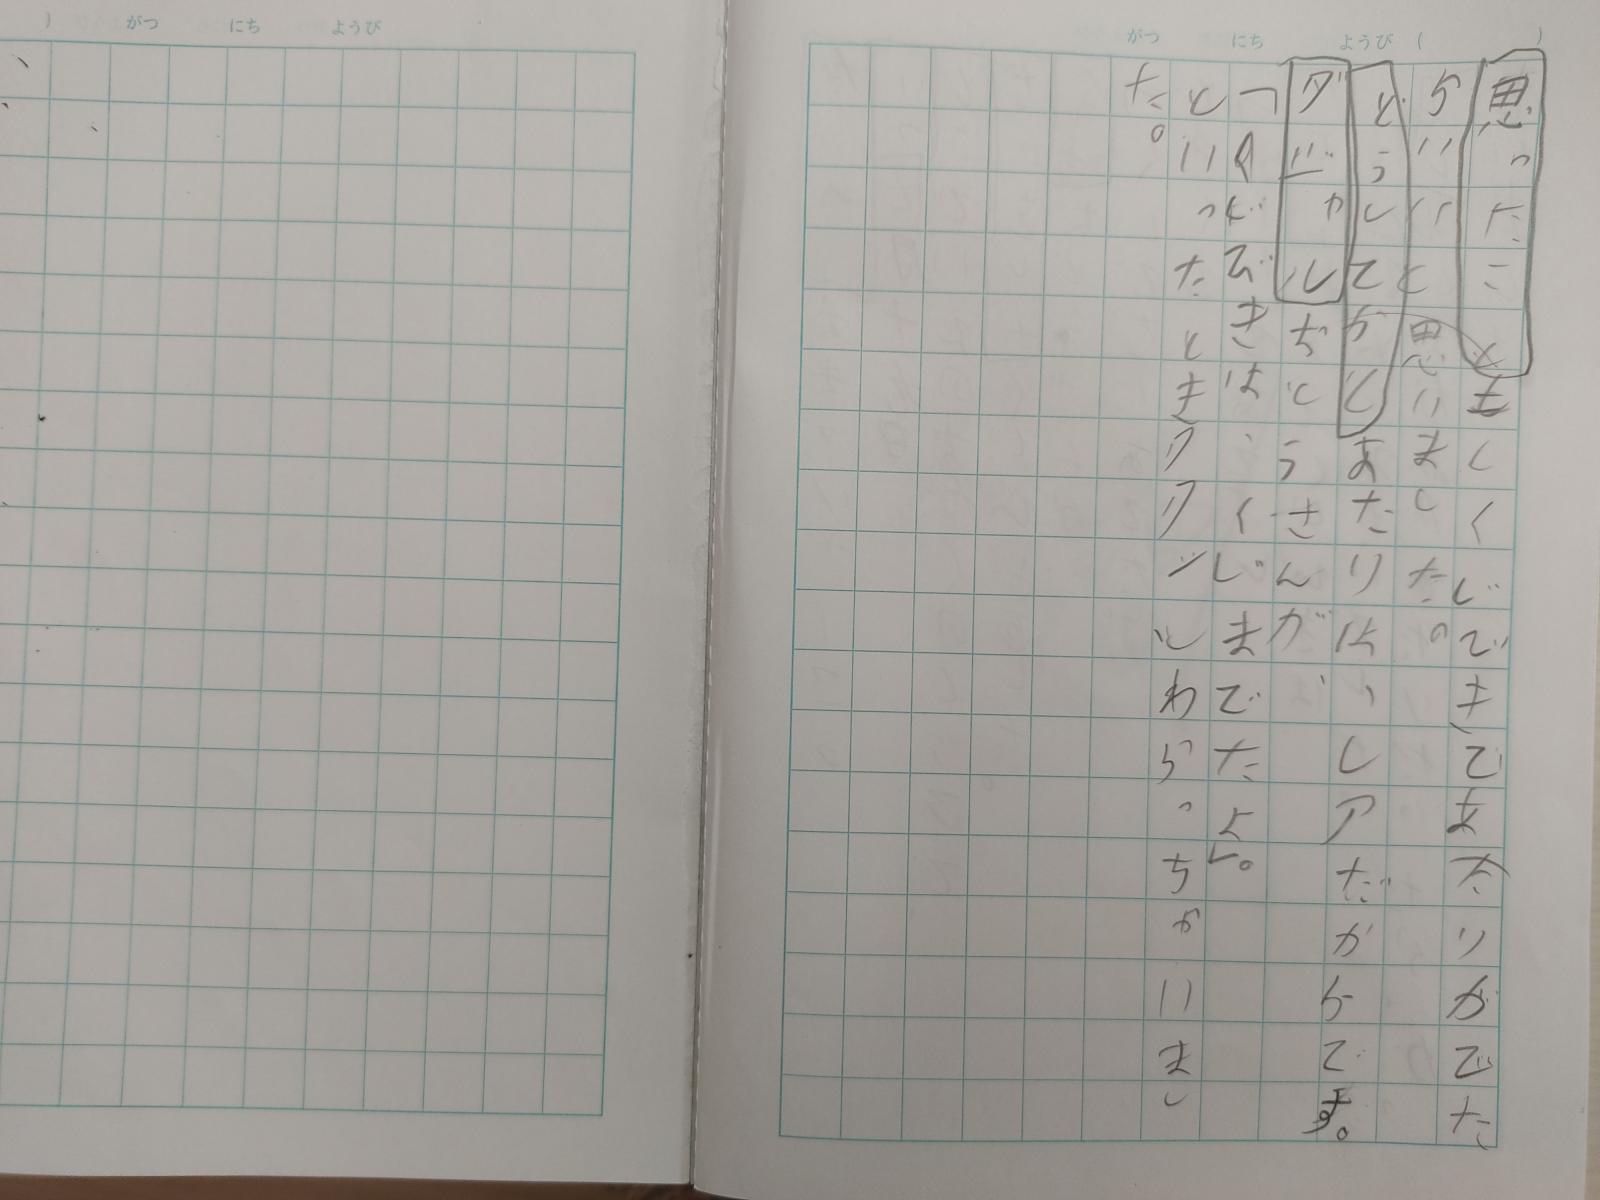 がつ にち ようび ( )
思ったこともしくじびきであたりがでた
らいいと思いました。
どうしてかとあたりは、レアだからです。
おとうさんが
「くじびきはふくじまでたよ」。
といったときククッとわらっちゃいまし
た。
) がつ にち ようび